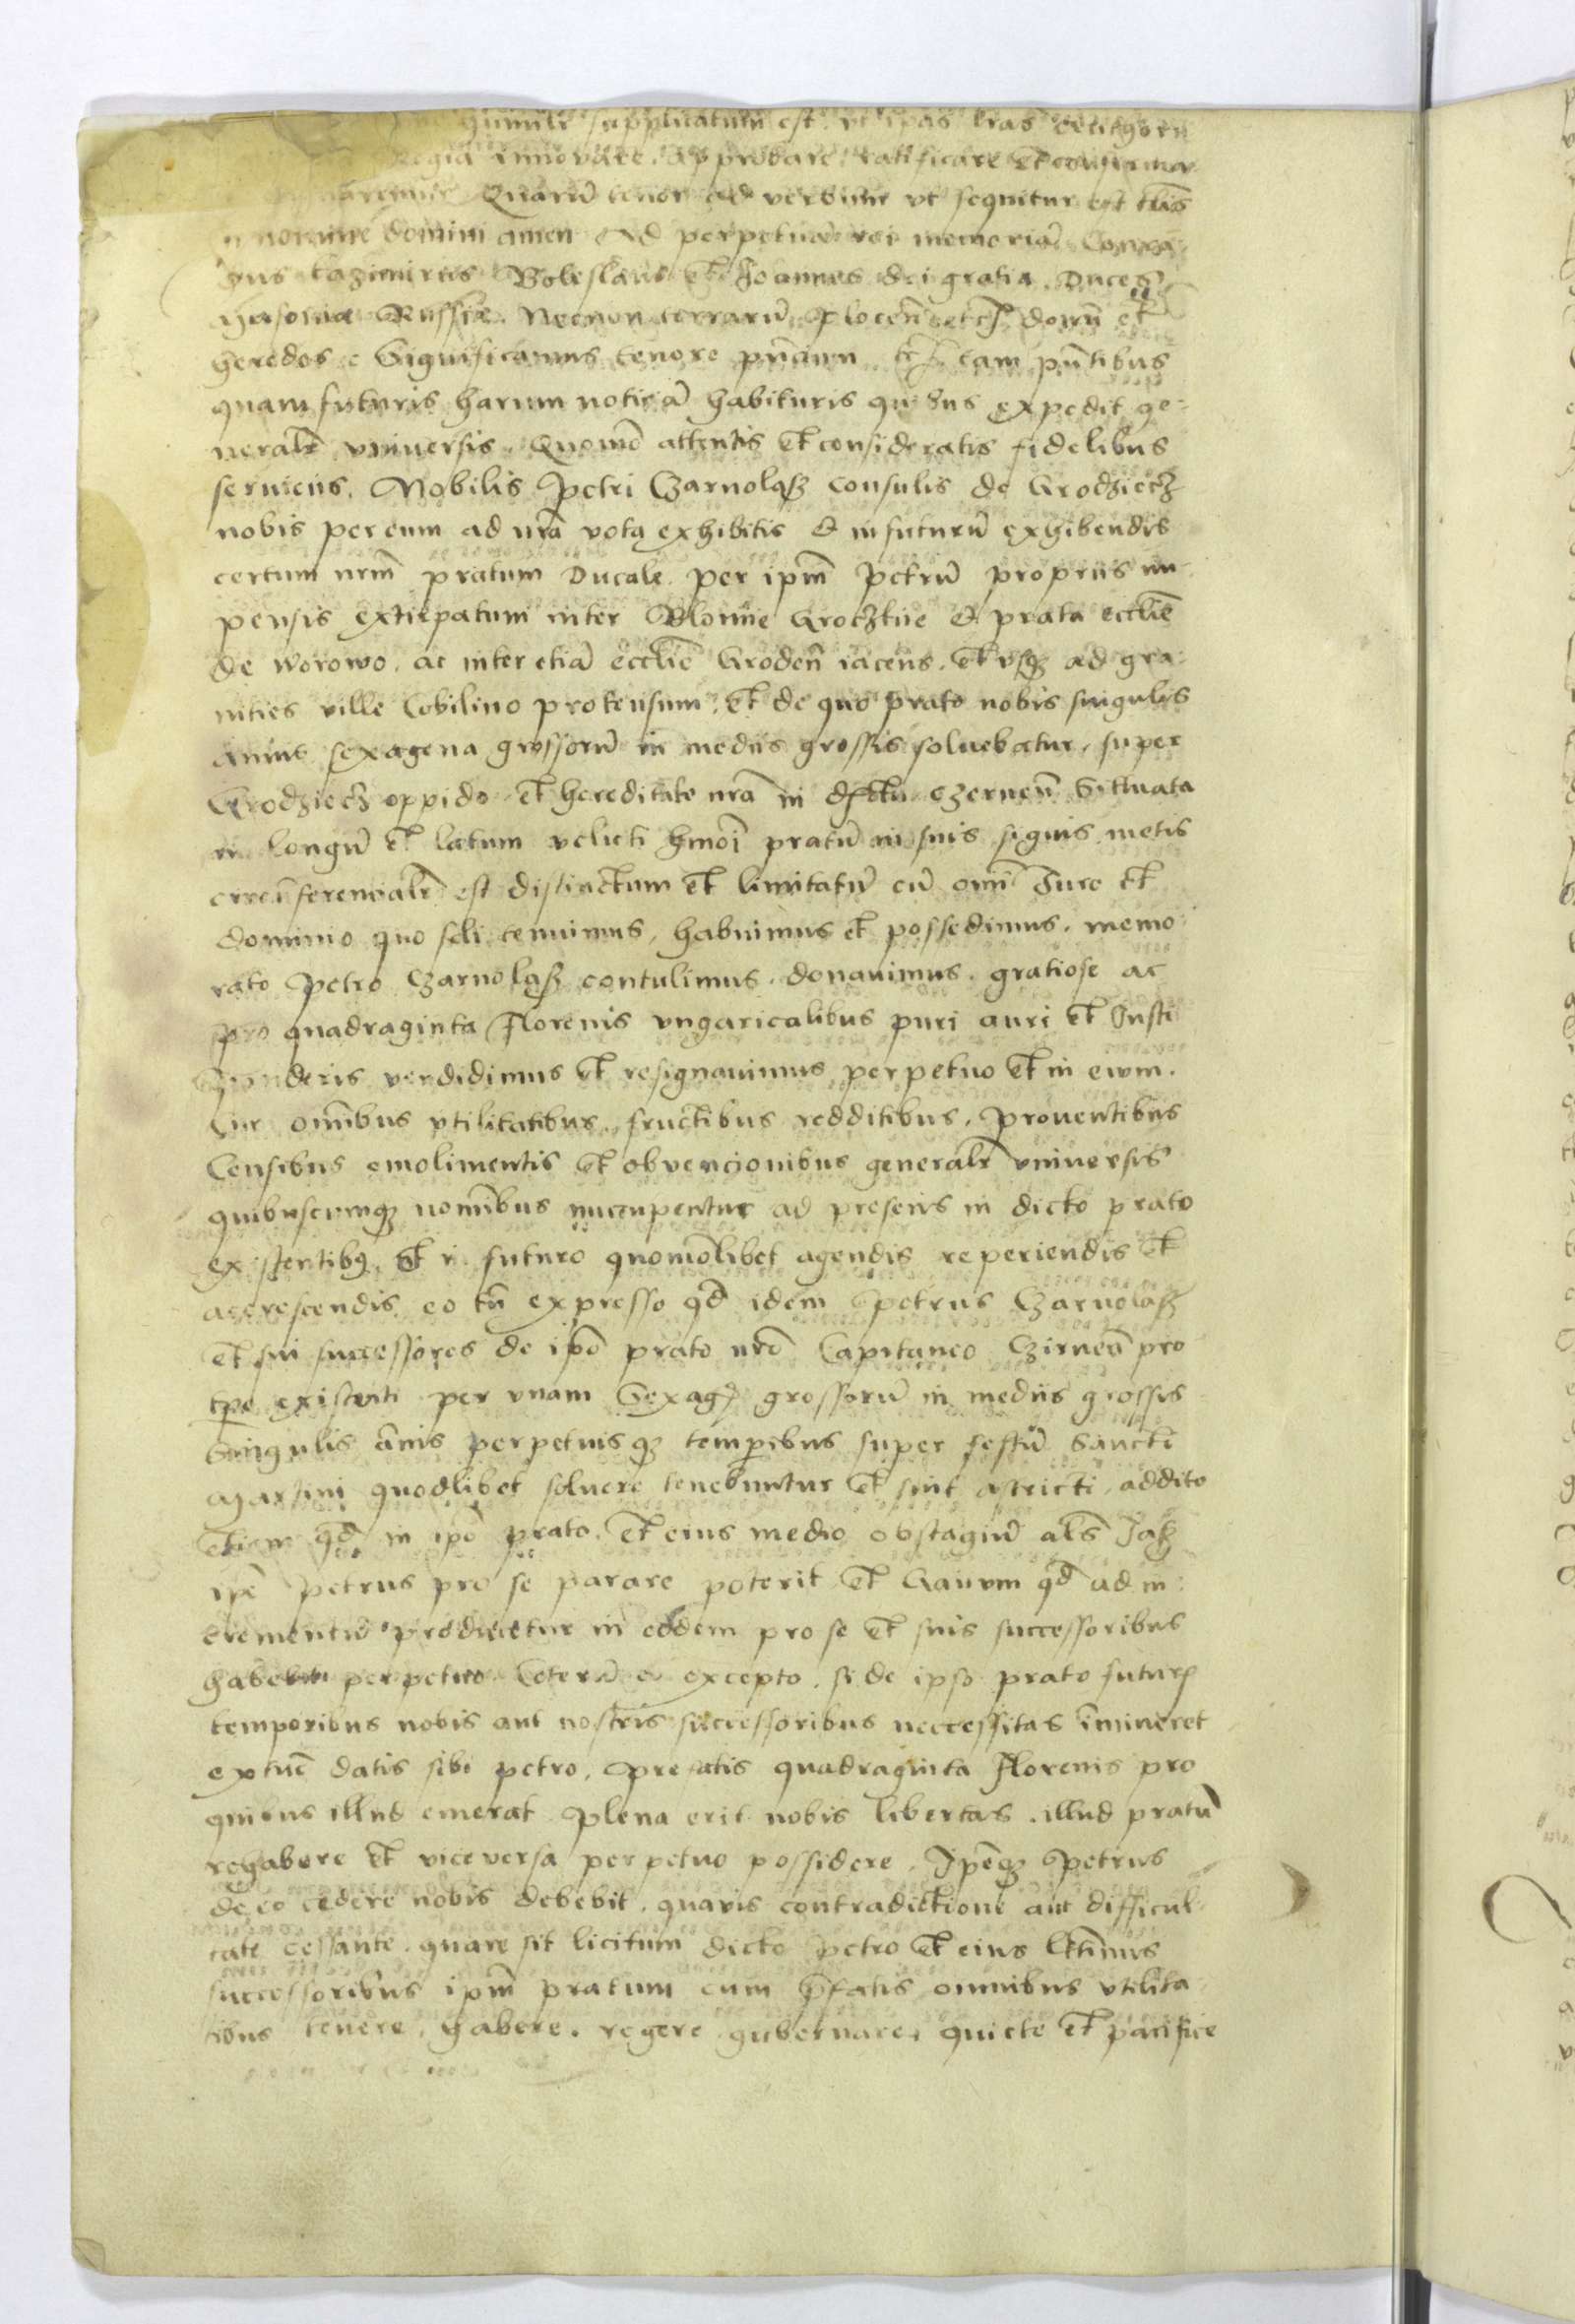 humili supplicatum est vt ip̃as l̃ras
Regia innovare approbare ratificare et confirmar
Quarũ tenor ad verbum vt sequitur est tlis
nomine domini amen Ad perpetuã rei memoriã Conra
dus Cazimirus Boleslaus et Joannes dei gratia Duces
Masouiæ Russiæ. Necnon terrarũ Plocen̄ etc̃ dom̃ et
heredes Significamus tenore pñcium tam pñtibus
quam futuris harum noticiã habituris quibus expedit ge
neralr̃ vniuersis. Quomõ attentis et consideratis fidelibus
seruiciis. Nobilis Petri Czarnolasz consulis de Grodziecz
nobis per eum ad nr̃a vota exhibitis & in futurũ exhibendis
certum nrm̃ pratum Ducale per ipm̃ Petrũ propriis im
pensis extirpatum inter Blonnie & prata eccliẽ
de Worowo. ac inter etiã eccliẽ Groden̄ iacens. et vsqȝ ad gra
nities ville Cobilino protensum. et de quo prato nobis singulis
annis sexagena grossorũ in mediis grossis soluebatur, super
Grodziecz oppido et hereditate nr̃a in Czernen̄ Sittuata
in longũ et latum velicti hmõi pratũ in suis signis metis
circũferencialr̃ est distinctum et limitatũ cũ omñi Jure et
dominio quo soli tenuimus, habuimus et possedimus. memo
rato Petro Czarnolasz contulimus. donauimus. gratiose ac
pro quadraginta Florenis vngaricalibus puri auri et Justi
ponderis vendidimus et resignauimus perpetuo et in ewm.
Cũ om̃ibus vtilitatibus. fructibus redditibus. prouentibus
Censibus emolimentis et obuencionibus generalr̃ vniuersis
quibuscumqȝ nomĩbus nuncupentur ad presens in dicto prato
existentibꝯ. et ĩ futuro quomõlibet agendis reperiendis et
accrescendis eo tñ expresso qd̃ idem Petrus Czarnolasz
et sui successores de ip̃o prato nr̃o Capitaneo Czirnen̄ pro
tp̃e existenti per vnam Sexag̃ grossorũ in mediis grossis
Singulis ãnis perpetuisqȝ temp̃ibus super festũ Sancti
Martini quodlibet soluere tenebuntur et sint astricti, addito
etiam qd̃ in ip̃o prato. et eius medio obstagiũ als̃ Jasz
ip̃e Petrus pro se parare poterit et qd̃ ad in
crementũ producetur in eodem pro se et suis successoribus
habebit perpetuo Ceterũ eo excepto. si de ipso prato futur̃
temporibus nobis aut nostris successoribus neccessitas ĩmineret
extũc datis sibi petro. prefatis quadraginta Florenis pro
quibus illud emerat Plena erit nobis libertas. illud pratũ
rehabere et vice versa perpetuo possidere. Ip̃eqȝ Petrus
de eo cedere nobis debebit. quavis contradictione aut difficul
tate cessante. quare sit licitum dicto Petro et eius lttimis
successoribus ipm̃ pratum cum p̃fatis omnibus vtilita
tibus tenere. habere. regere gubernare. quiete et pacifice